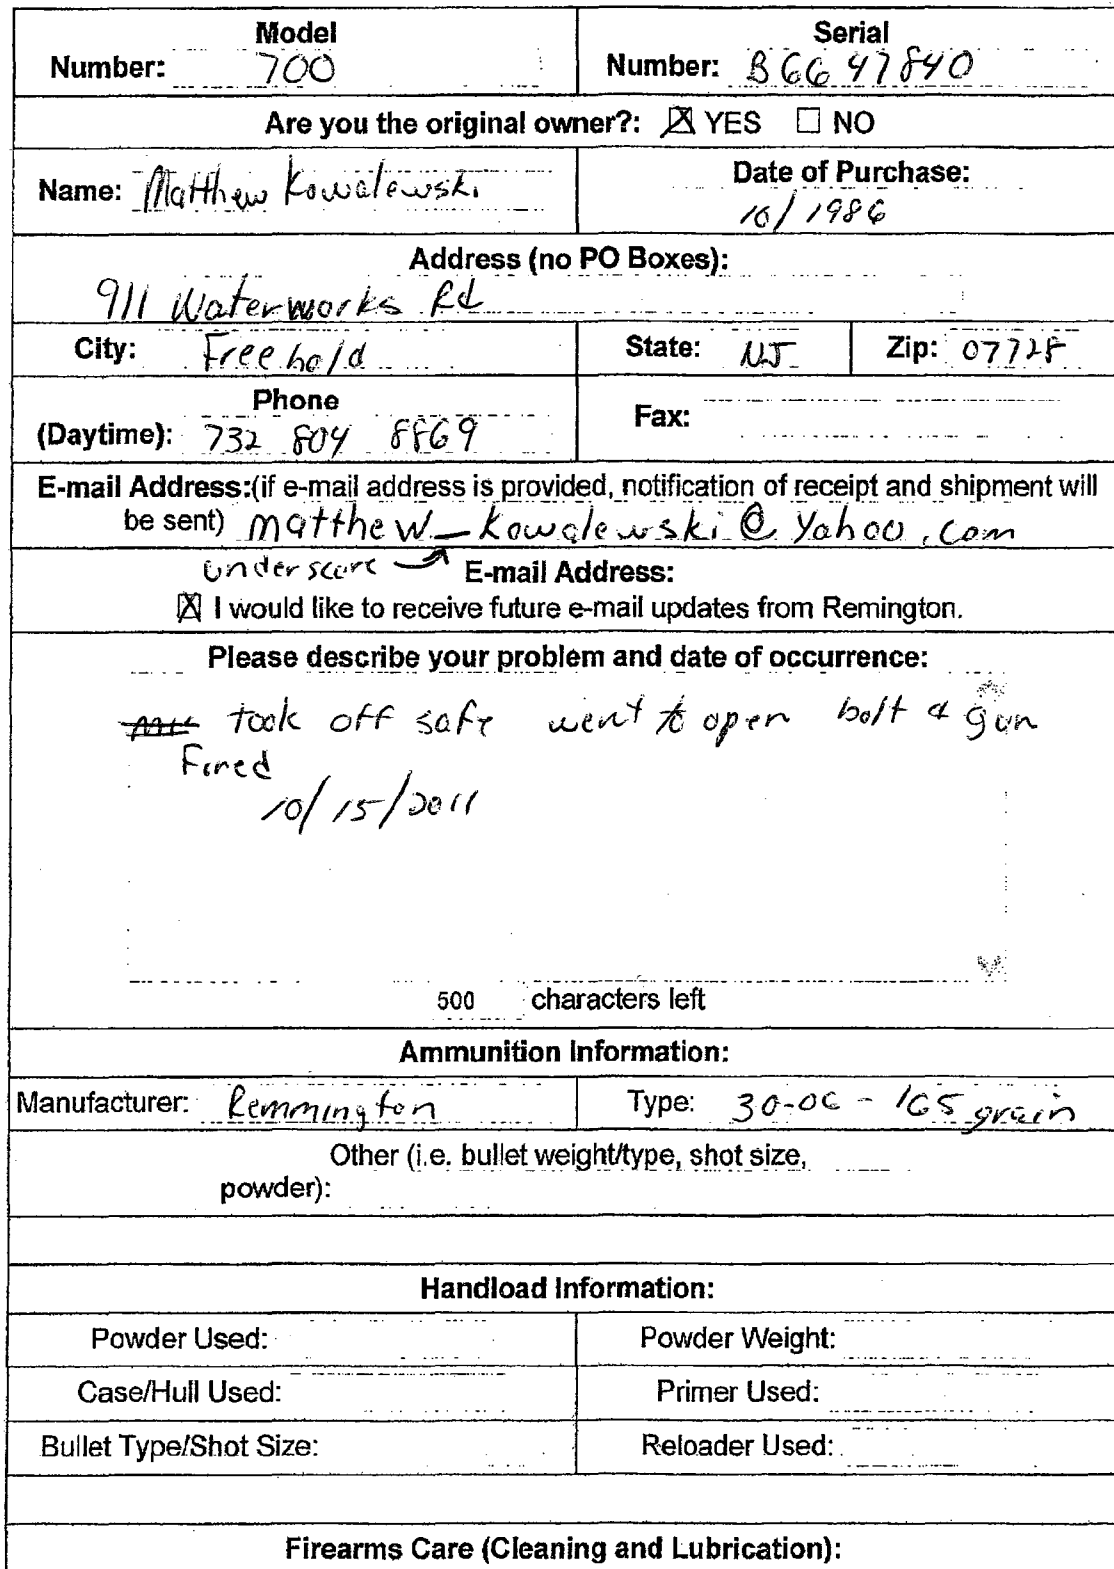 Model
Number: 700
Serial
Number: B6647840
Are you the original owner?: ☒ YES ☐ NO
Name: Matthew Kowalewski
Date of Purchase:
10/1986
Address (no PO Boxes):
911 Waterworks Rd
City: Freehold
State: NJ
Zip: 07728
Phone
(Daytime): 732 804 8869
Fax:
E-mail Address:(if e-mail address is provided, notification of receipt and shipment will
be sent) matthew_kowalewski@yahoo.com
underscore
E-mail Address:
☒ I would like to receive future e-mail updates from Remington.
Please describe your problem and date of occurrence:
took off safe went to open bolt & gun
Fired
10/15/2011
500 characters left
Ammunition Information:
Manufacturer: Remmington
Type: 30-06 - 165 grain
Other (i.e. bullet weight/type, shot size,
powder):
Handload Information:
Powder Used:
Powder Weight:
Case/Hull Used:
Primer Used:
Bullet Type/Shot Size:
Reloader Used:
Firearms Care (Cleaning and Lubrication):